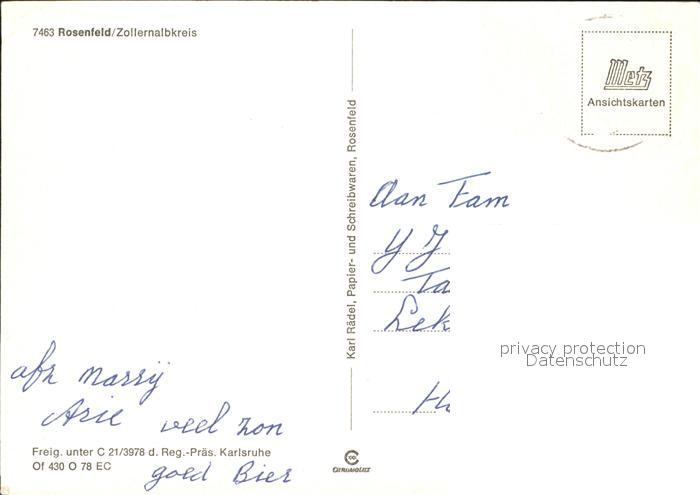 7463 Rosenfeld/Zollernalbkreis
Metz
Ansichtskarten
Karl Rädel, Papier- und Schreibwaren, Rosenfeld
Aan Fam
Y J
Ta
Lek
H
privacy protection
Datenschutz
afz Marrij
Arie veel zon
goed Bier
Freig. unter C 21/3978 d. Reg.-Präs. Karlsruhe
Of 430 O 78 EC